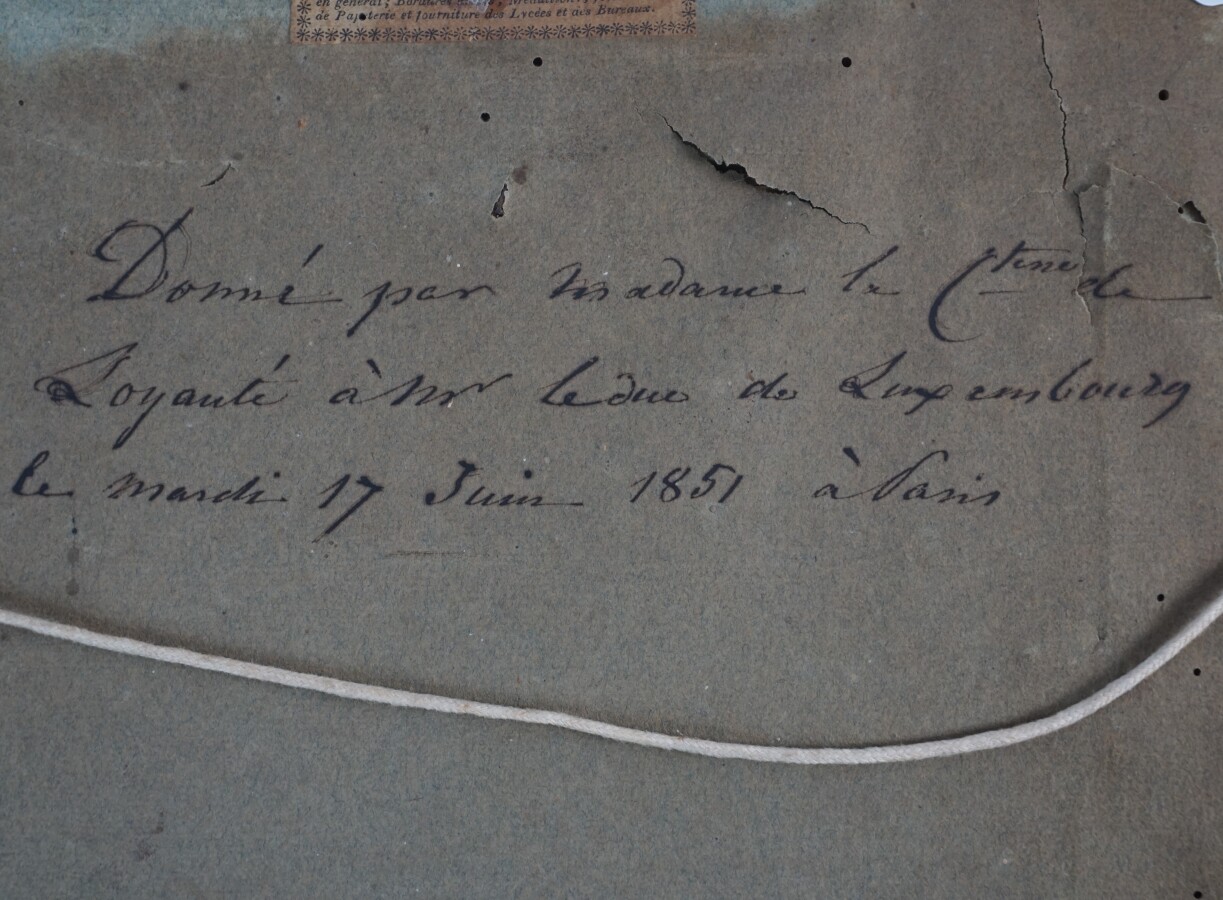 en général ; Bordures
de Papeterie et fourniture des Lycées et des Bureaux.
Donné par madame la Ctesse de
Loyauté à Mr le duc de Luxembourg
le mardi 17 Juin 1851 à Paris